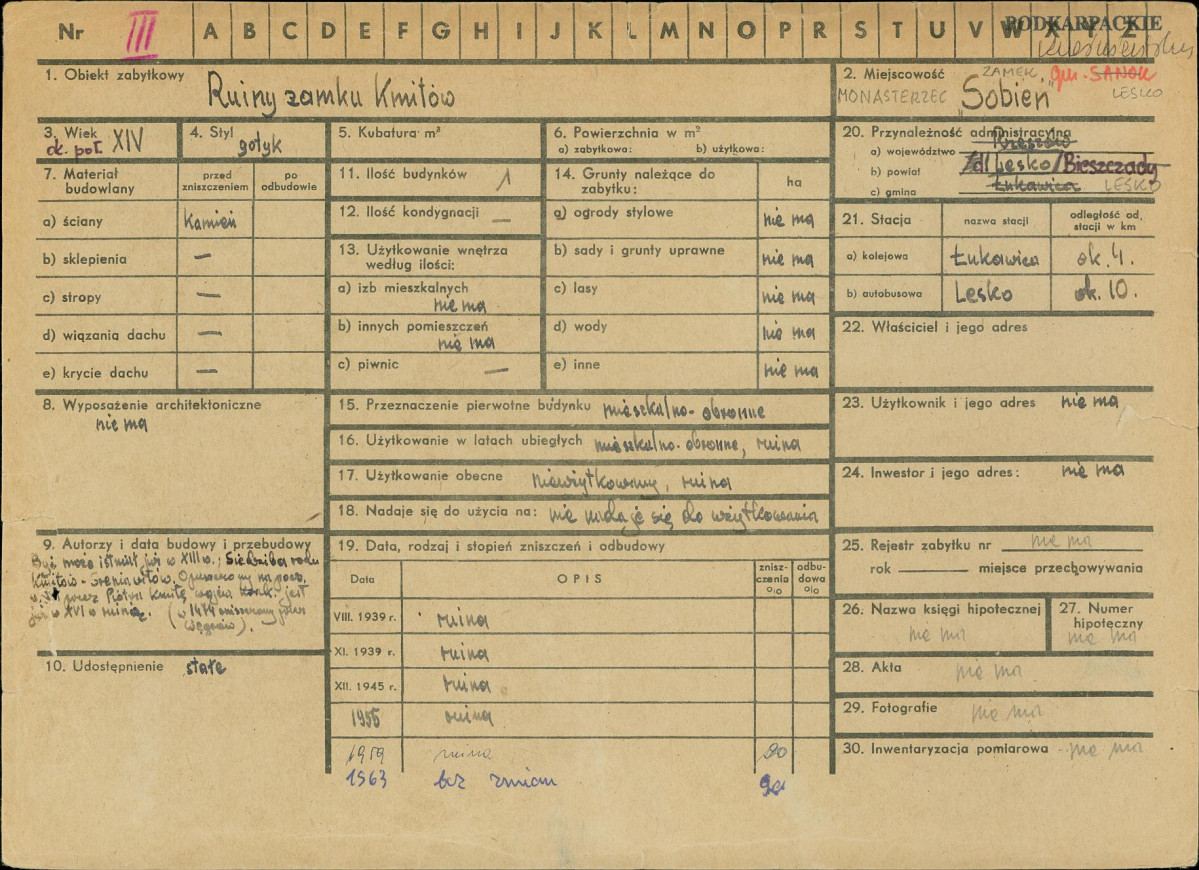 Nr III A B C D E F G H I J K L M N O P R S T U V W X Y Z
PODKARPACKIE
1. Obiekt zabytkowy
Ruiny zamku Kmitów
2. Miejscowość ZAMEK gm. SANOK
MONASTERZEC „Sobień” LESKO
3. Wiek
ok. poł. XIV
4. Styl
gotyk
5. Kubatura m³
6. Powierzchnia w m²
a) zabytkowa: b) użytkowa:
20. Przynależność administracyjna
Rzeszów
a) województwo
b) powiat Lesko/Bieszczady
c) gmina Łukawica LESKO
7. Materiał budowlany
przed zniszczeniem
po odbudowie
a) ściany Kamień
b) sklepienia —
c) stropy —
d) wiązania dachu —
e) krycie dachu —
11. Ilość budynków 1
12. Ilość kondygnacji —
13. Użytkowanie wnętrza
według ilości:
a) izb mieszkalnych
nie ma
b) innych pomieszczeń
nie ma
c) piwnic —
14. Grunty należące do
zabytku: ha
a) ogrody stylowe nie ma
b) sady i grunty uprawne nie ma
c) lasy nie ma
d) wody nie ma
e) inne nie ma
21. Stacja
nazwa stacji
odległość od stacji w km
a) kolejowa Łukawica ok. 4.
b) autobusowa Lesko ok. 10.
22. Właściciel i jego adres
8. Wyposażenie architektoniczne
nie ma
15. Przeznaczenie pierwotne budynku mieszkalno-obronne
16. Użytkowanie w latach ubiegłych mieszkalno-obronne, ruina
17. Użytkowanie obecne nieużytkowany, ruina
18. Nadaje się do użycia na: nie nadaje się do użytkowania
23. Użytkownik i jego adres nie ma
24. Inwestor i jego adres: nie ma
9. Autorzy i data budowy i przebudowy
Być może istniał już w XIII w.; Siedziba rodu
Kmitów-Śreniawitów. Opuszczony na pocz.
przez Piotra Kmitę wojew. krak. jest
już w XVI w ruiną. (w 1474 zniszczony przez
Węgrów).
10. Udostępnienie stałe
19. Data, rodzaj i stopień zniszczeń i odbudowy
Data
OPIS
znisz-
czenia
%
odbu-
dowa
%
VIII. 1939 r. ruina
XI. 1939 r. ruina
XII. 1945 r. ruina
1955 ruina
1959 ruina 90
1963 bez zmian 90
25. Rejestr zabytku nr nie ma
rok miejsce przechowywania
26. Nazwa księgi hipotecznej
nie ma
27. Numer
hipoteczny
nie ma
28. Akta nie ma
29. Fotografie nie ma
30. Inwentaryzacja pomiarowa nie ma